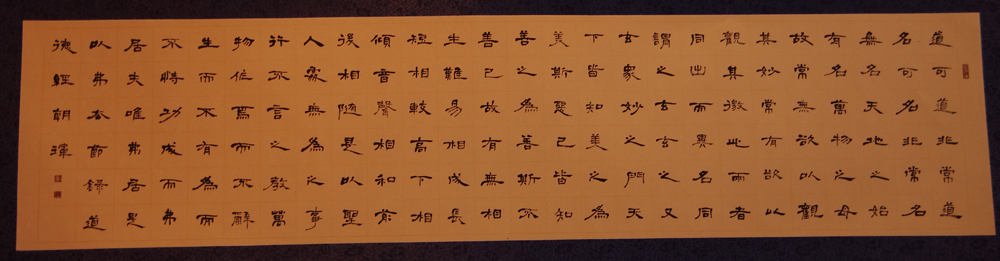 道可道非常道
名可名非常名
無名天地之始
有名萬物之母
故常無欲以觀
其妙常有欲以
觀其徼此兩者
同出而異名同
謂之玄玄之又
玄衆妙之門天
下皆知美之為
美斯惡已皆知
善之為善斯不
善已故有無相
生難易相成長
短相較高下相
傾音聲相和前
後相隨是以聖
人處無為之事
行不言之教萬
物作焉而不辭
生而不有為而
不恃功成而弗
居夫唯弗居是
以弗去節錄道
德經朝暉